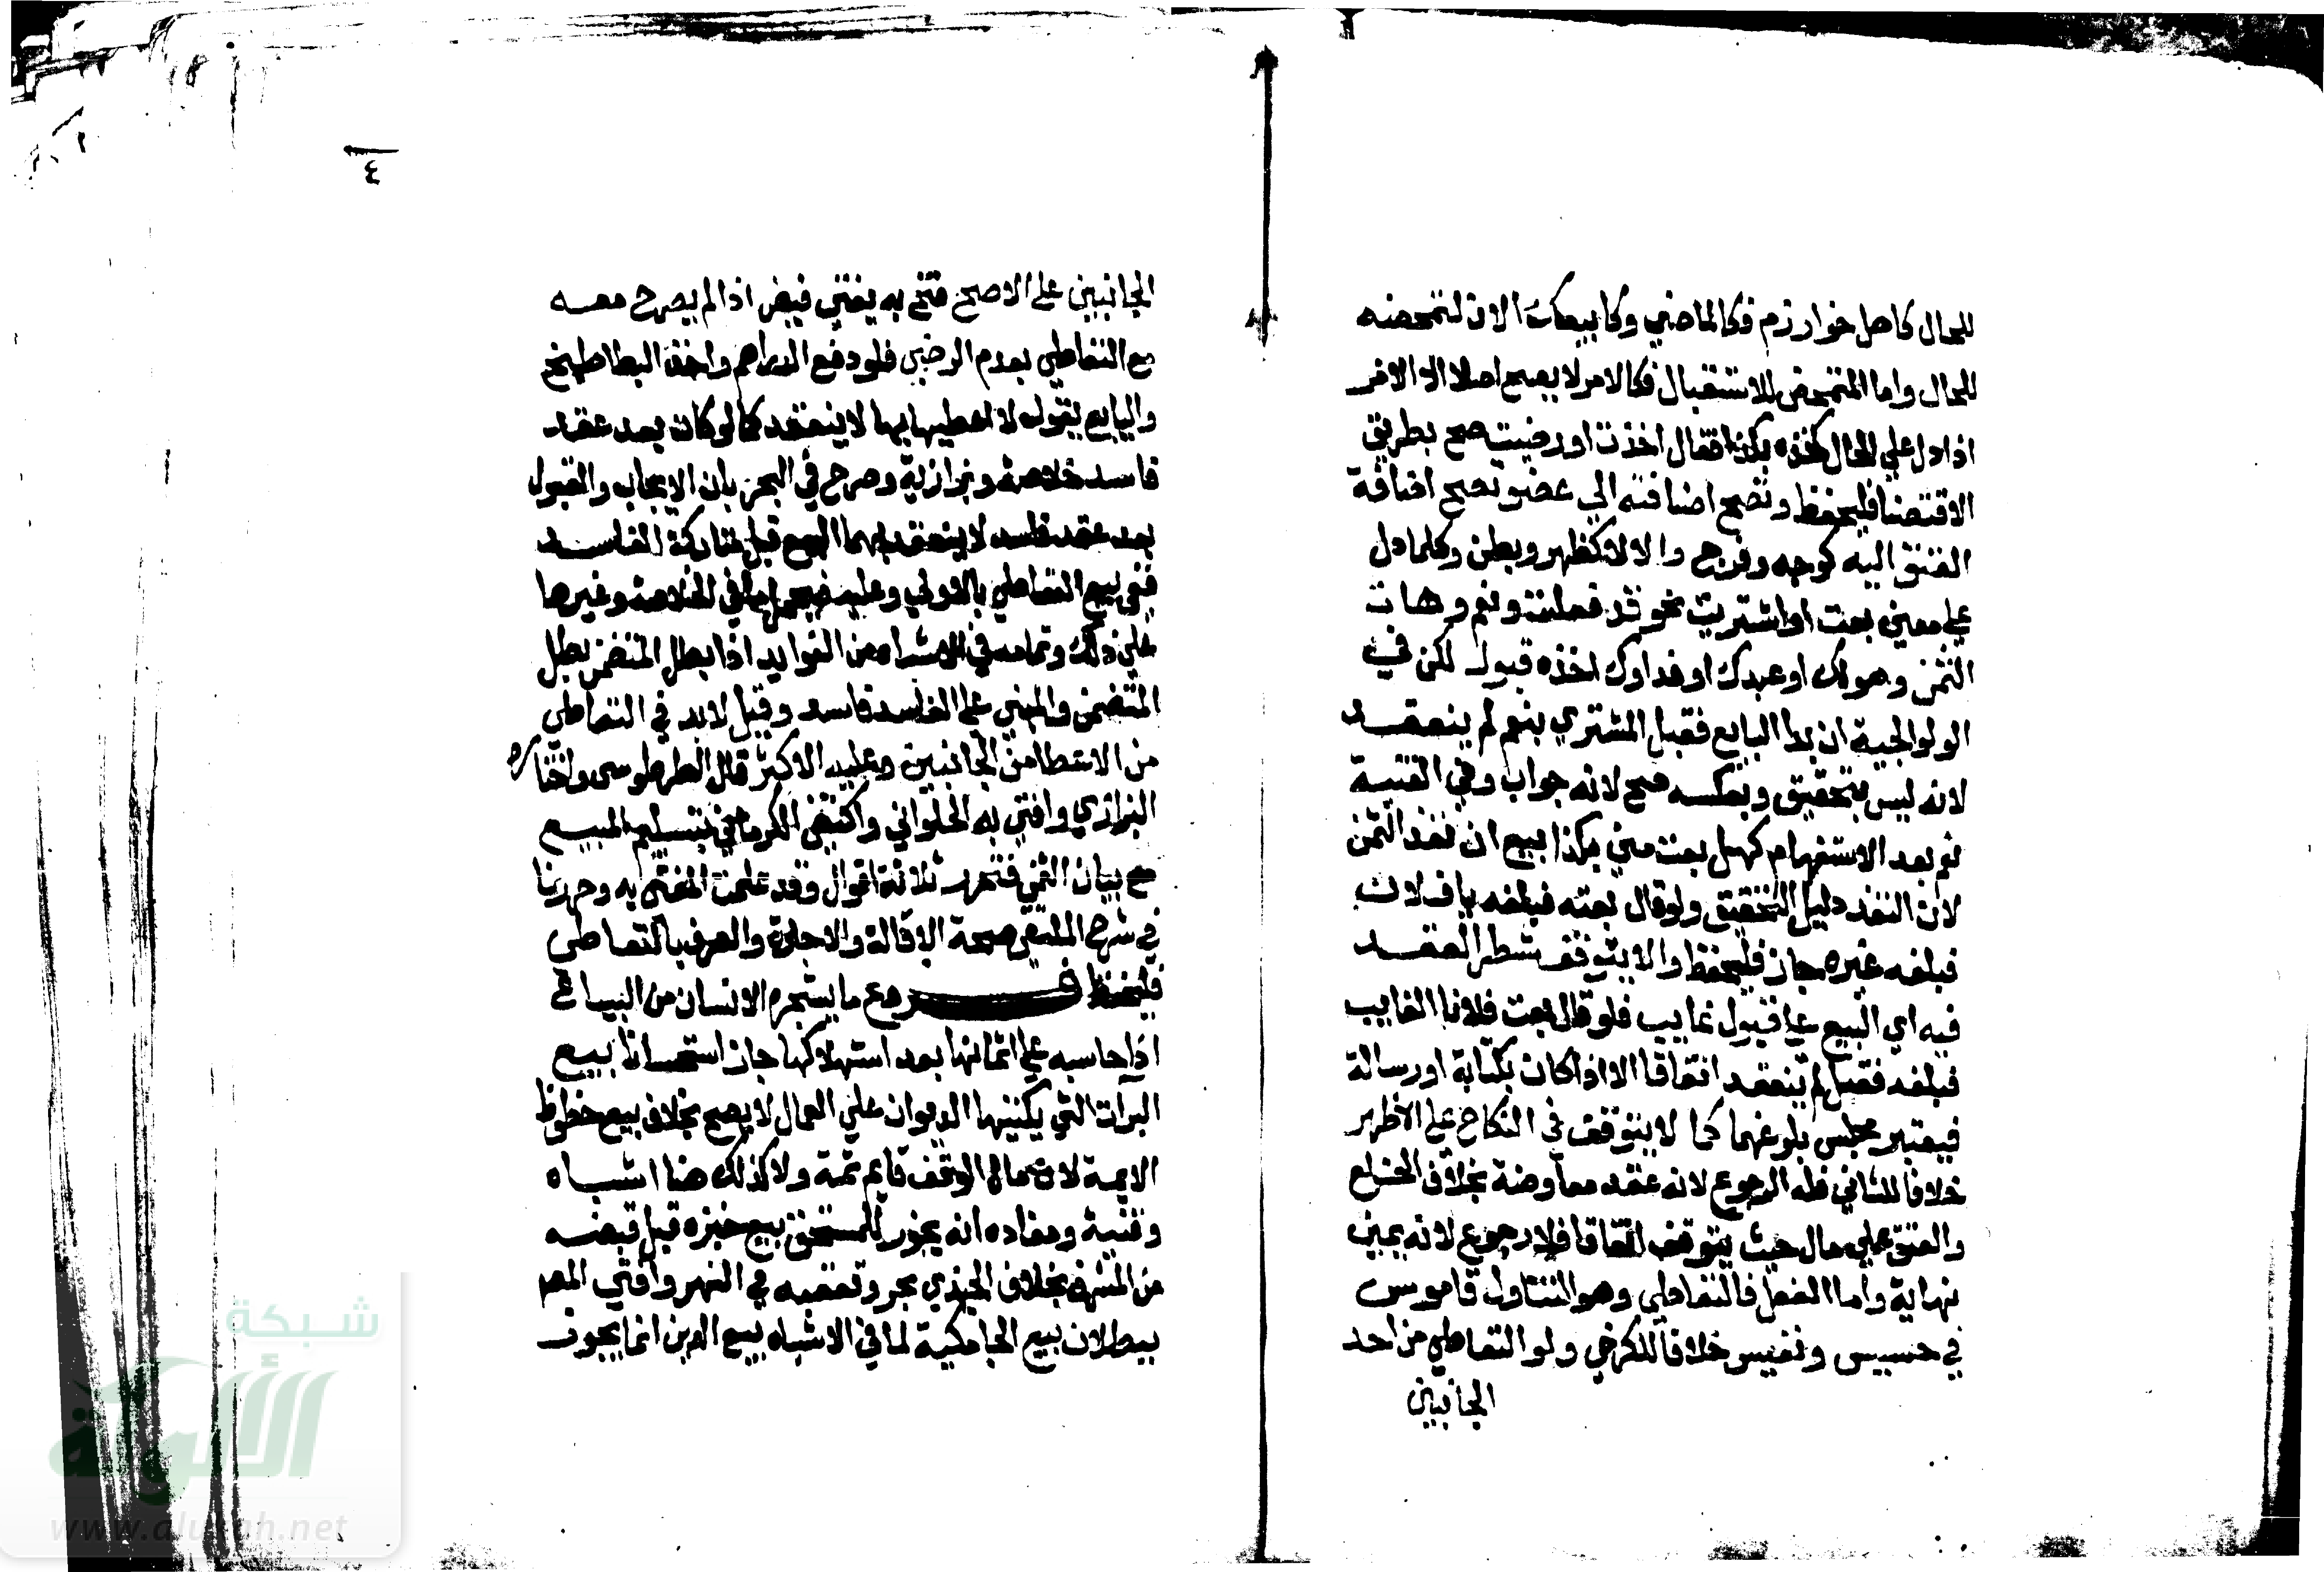 للحال كاهل خوارزم فكالماضي وكابيعك الان لتمحضه
للحال واما المتمحض للاستقبال فكالامر لا يصح اصلا الا الامر
اذا دل علي الحال كخذه بكذا فقال اخذت او رضيت صح بطريق
الاقتضا فليحفظ وتصح اضافته الي عضو تصح اضافة
العتق اليه كوجه وفرج والا لا كظهر وبطن وكلما دل
علي معني بعت او اشتريت نحو قد فعلت ونعم وهات
الثمن وهو لك او عبدك او فداوك اخذه قبول لكن في
الولوالجية ان بدا البايع فقبل المشتري بنعم لم ينعقد
لانه ليس بتحقيق وبعكسه صح لانه جواب وفي القنية
نعم بعد الاستفهام كهل بعت مني بكذا بيع ان نقد الثمن
لان النقد دليل التحقيق ولو قال بعته فبلغه يا فلان
فبلغه غيره جاز فليحفظ والا يتوقف شطر العقد
فيه اي البيع علي قبول غايب فلو قال بعت فلانا الغايب
فبلغه فقبل لم ينعقد اتفاقا الا اذا كان بكتابة او رسالة
فيعتبر مجلس بلوغهما كما لا يتوقف في النكاح علي الاظهر
خلافا للثاني فله الرجوع لانه عقد معاوضة بخلاف الخلع
والعتق علي مال حيث يتوقف اتفاقا فلا رجوع لانه يمين
نهاية واما الفعل فالتعاطي وهو التناول قاموس
في خسيس ونفيس خلافا للكرخي ولو التعاطي من احد
الجانبين
٤
الجانبين علي الاصح فتح به يفتي فيض اذا لم يصرح معه
مع التعاطي بعدم الرضي فلو دفع الدراهم واخذ البطاطيخ
والبايع يقول لا اعطيها بها لا ينعقد كما لو كان بعد عقد
فاسد خلاصة وبزازية وصرح في البحر بان الايجاب والقبول
بعد عقد فاسد لا ينعقد بهما البيع قبل متاركة الفاسد
ففي بيع التعاطي بالاولي وعليه فيحمل ما في الخلاصة وغيرها
علي ذلك وتمامه في الاشباه من الفوايد اذا بطل المتضمن بطل
المتضمن والمبني علي الفاسد فاسد وقيل لا بد في التعاطي
من الاعطا من الجانبين وعليه الاكثر قال الطرطوسي واختاره
البزازي وافتي به الحلواني واكتفي الكرماني بتسليم المبيع
مع بيان الثمن فتحرر ثلاثة اقوال وقد علمت المفتي به وحررنا
في شرح الملتقي صحة الاقالة والاجارة والصرف بالتعاطي
فليحفظ فـــرع ما يستجره الانسان من البياع
اذا حاسبه علي اثمانها بعد استهلاكها جاز استحسانا بيع
البرآت التي يكتبها الديوان علي العمال لا يصح بخلاف بيع حظوظ
الايمة لان مال الوقف قايم ثمة ولا كذلك هنا اشباه
وقنية ومفاده انه يجوز للمستحق بيع خبزه قبل قبضه
من المشرف بخلاف الجندي بحر وتعقبه في النهر وافتي المص
ببطلان بيع الجامكية لما في الاشباه بيع الدين انما يجوز
شبكة
الألوكة
www.alukah.net